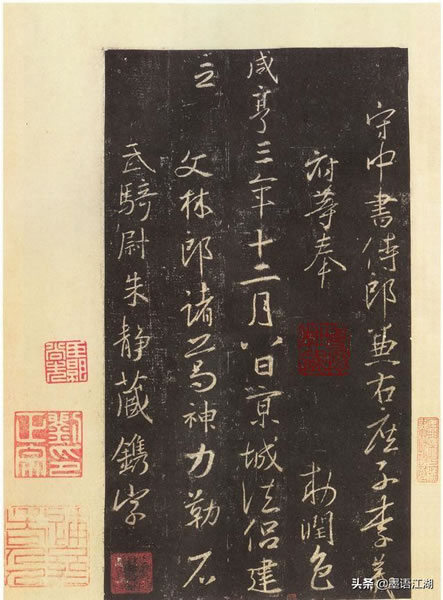 守中書侍郎兼右庶子李義
府等奉 勅潤色
咸亨三年十二月八日京城法侣建
立 文林郎諸葛神力勒石
武騎尉朱静藏鐫字
劉印正宗
头条 @墨语江湖